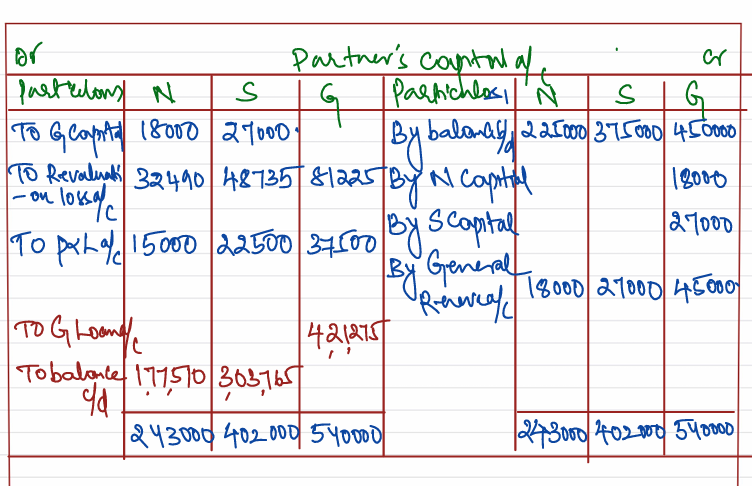 Dr Partner's Capital a/c Cr
Particulars N S G Particulars N S G
To G Capital 18000 27000 By balance b/d 225000 375000 450000
To Revaluati 32490 48735 81225 By N Capital 18000
- on loss a/c
By S Capital 27000
To P&L a/c 15000 22500 37500
By General
Reserve a/c 18000 27000 45000
To G Loan a/c 421275
To balance c/d 177510 303765
243000 402000 540000 243000 402000 540000